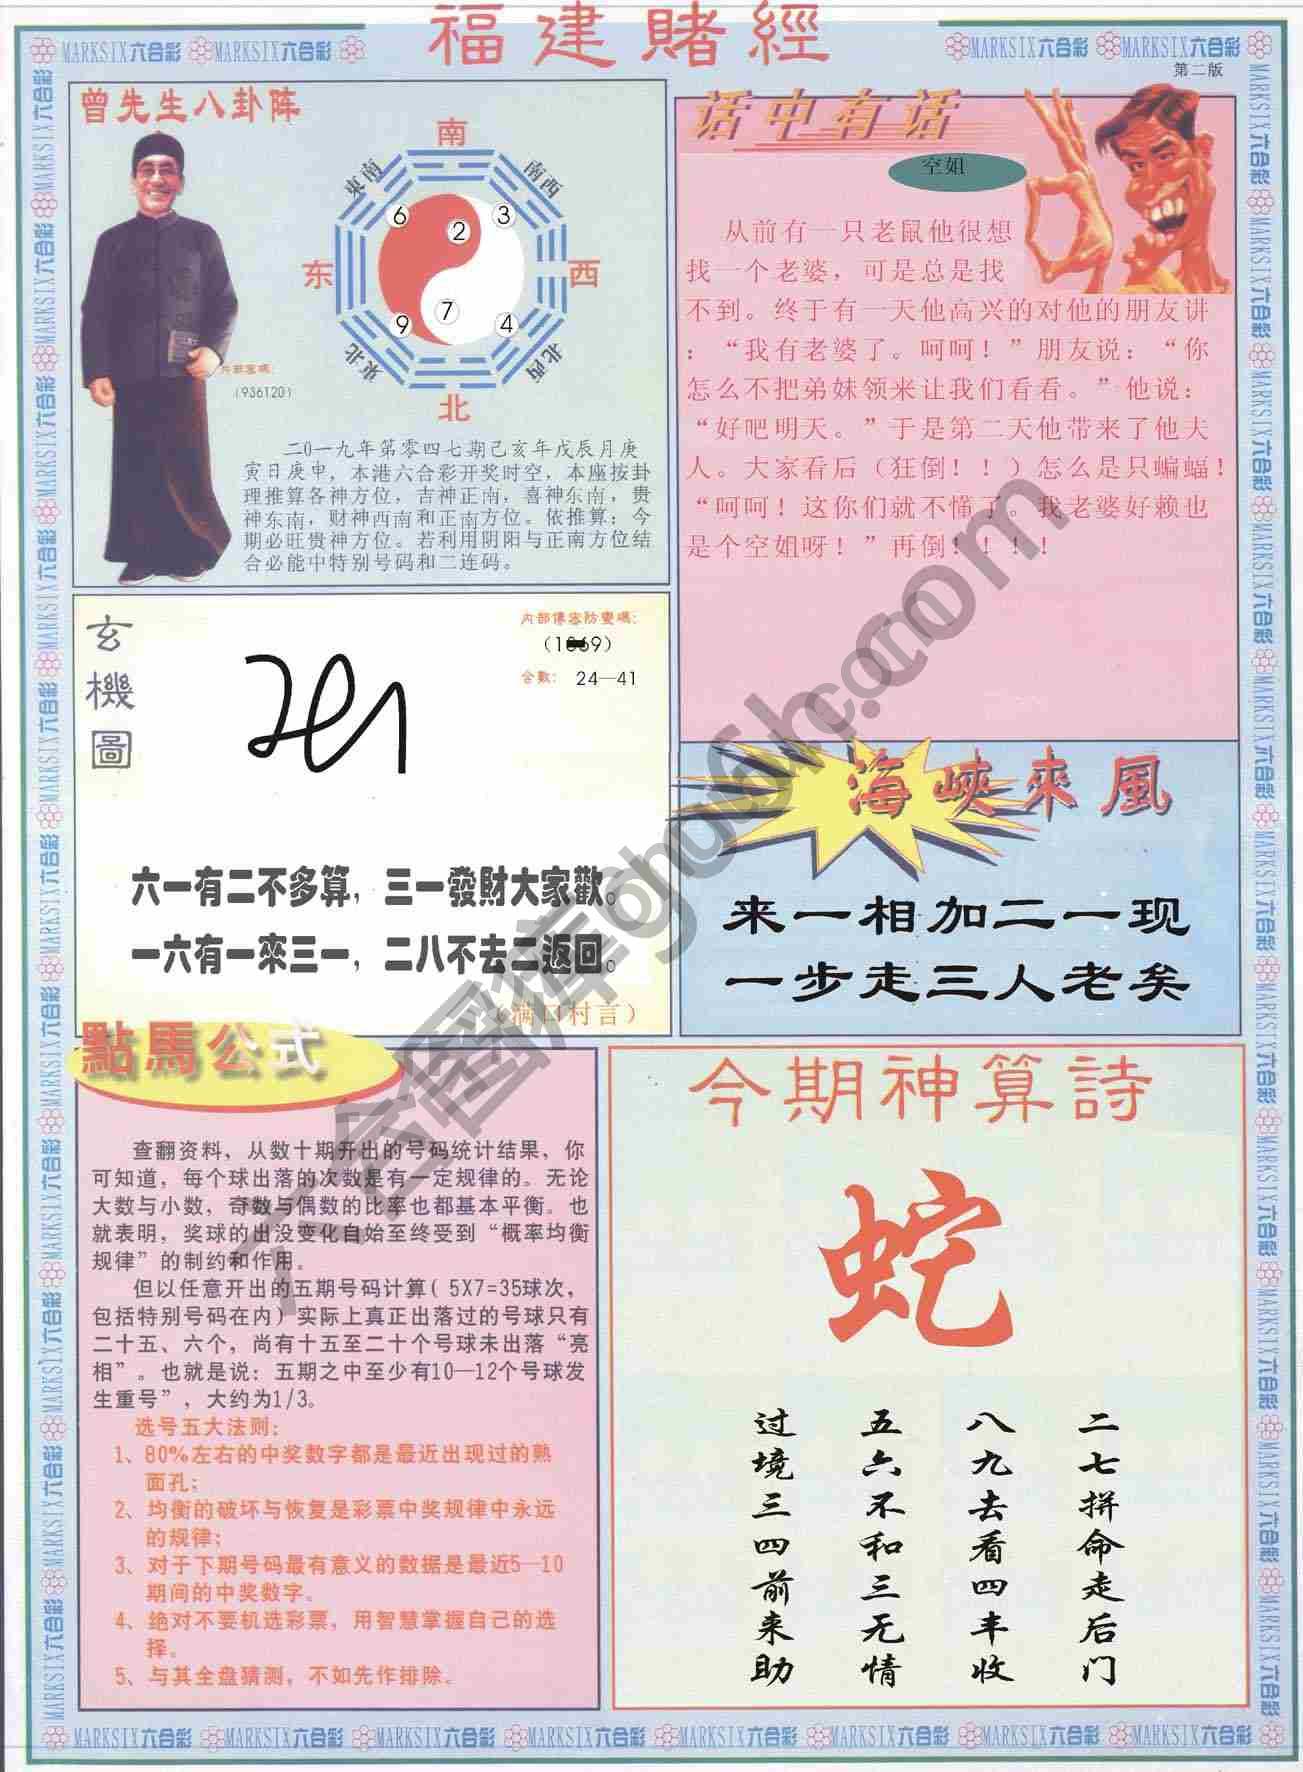 福建賭經
MARKSIX六合彩 MARKSIX六合彩
MARKSIX六合彩 MARKSIX六合彩
第二版
曾先生八卦阵
南
東南
南西
6
2
3
东
西
7
9
4
東北
北西
北
内部密碼：
（936120）
二0一九年第零四七期己亥年戊辰月庚
寅日庚申，本港六合彩开奖时空，本座按卦
理推算各神方位，吉神正南，喜神东南，贵
神东南，财神西南和正南方位。依推算：今
期必旺贵神方位。若利用阴阳与正南方位结
合必能中特别号码和二连码。
话中有话
空姐
从前有一只老鼠他很想
找一个老婆，可是总是找
不到。终于有一天他高兴的对他的朋友讲
：“我有老婆了。呵呵！”朋友说：“你
怎么不把弟妹领来让我们看看。”他说：
“好吧明天。”于是第二天他带来了他夫
人。大家看后（狂倒！！）怎么是只蝙蝠！
“呵呵！这你们就不懂了。我老婆好赖也
是个空姐呀！”再倒！！！！
玄機圖
内部傳密防變碼：
合數： 24—41
六一有二不多算，三一發財大家歡。
一六有一來三一，二八不去二返回。
（满口村言）
海峽來風
来一相加二一现
一步走三人老矣
點馬公式
查翻资料，从数十期开出的号码统计结果，你
可知道，每个球出落的次数是有一定规律的。无论
大数与小数，奇数与偶数的比率也都基本平衡。也
就表明，奖球的出没变化自始至终受到“概率均衡
规律”的制约和作用。
但以任意开出的五期号码计算（5X7=35球次，
包括特别号码在内）实际上真正出落过的号球只有
二十五、六个，尚有十五至二十个号球未出落“亮
相”。也就是说：五期之中至少有10—12个号球发
生重号”，大约为1/3。
选号五大法则：
1、80%左右的中奖数字都是最近出现过的熟
面孔；
2、均衡的破坏与恢复是彩票中奖规律中永远
的规律；
3、对于下期号码最有意义的数据是最近5—10
期间的中奖数字。
4、绝对不要机选彩票，用智慧掌握自己的选
择。
5、与其全盘猜测，不如先作排除。
今期神算詩
蛇
二七拼命走后门
八九去看四丰收
五六不和三无情
过境三四前来助
MARKSIX六合彩 MARKSIX六合彩 MARKSIX六合彩 MARKSIX六合彩 MARKSIX六合彩 MARKSIX六合彩 MARKSIX六合彩 MARKSIX六合彩